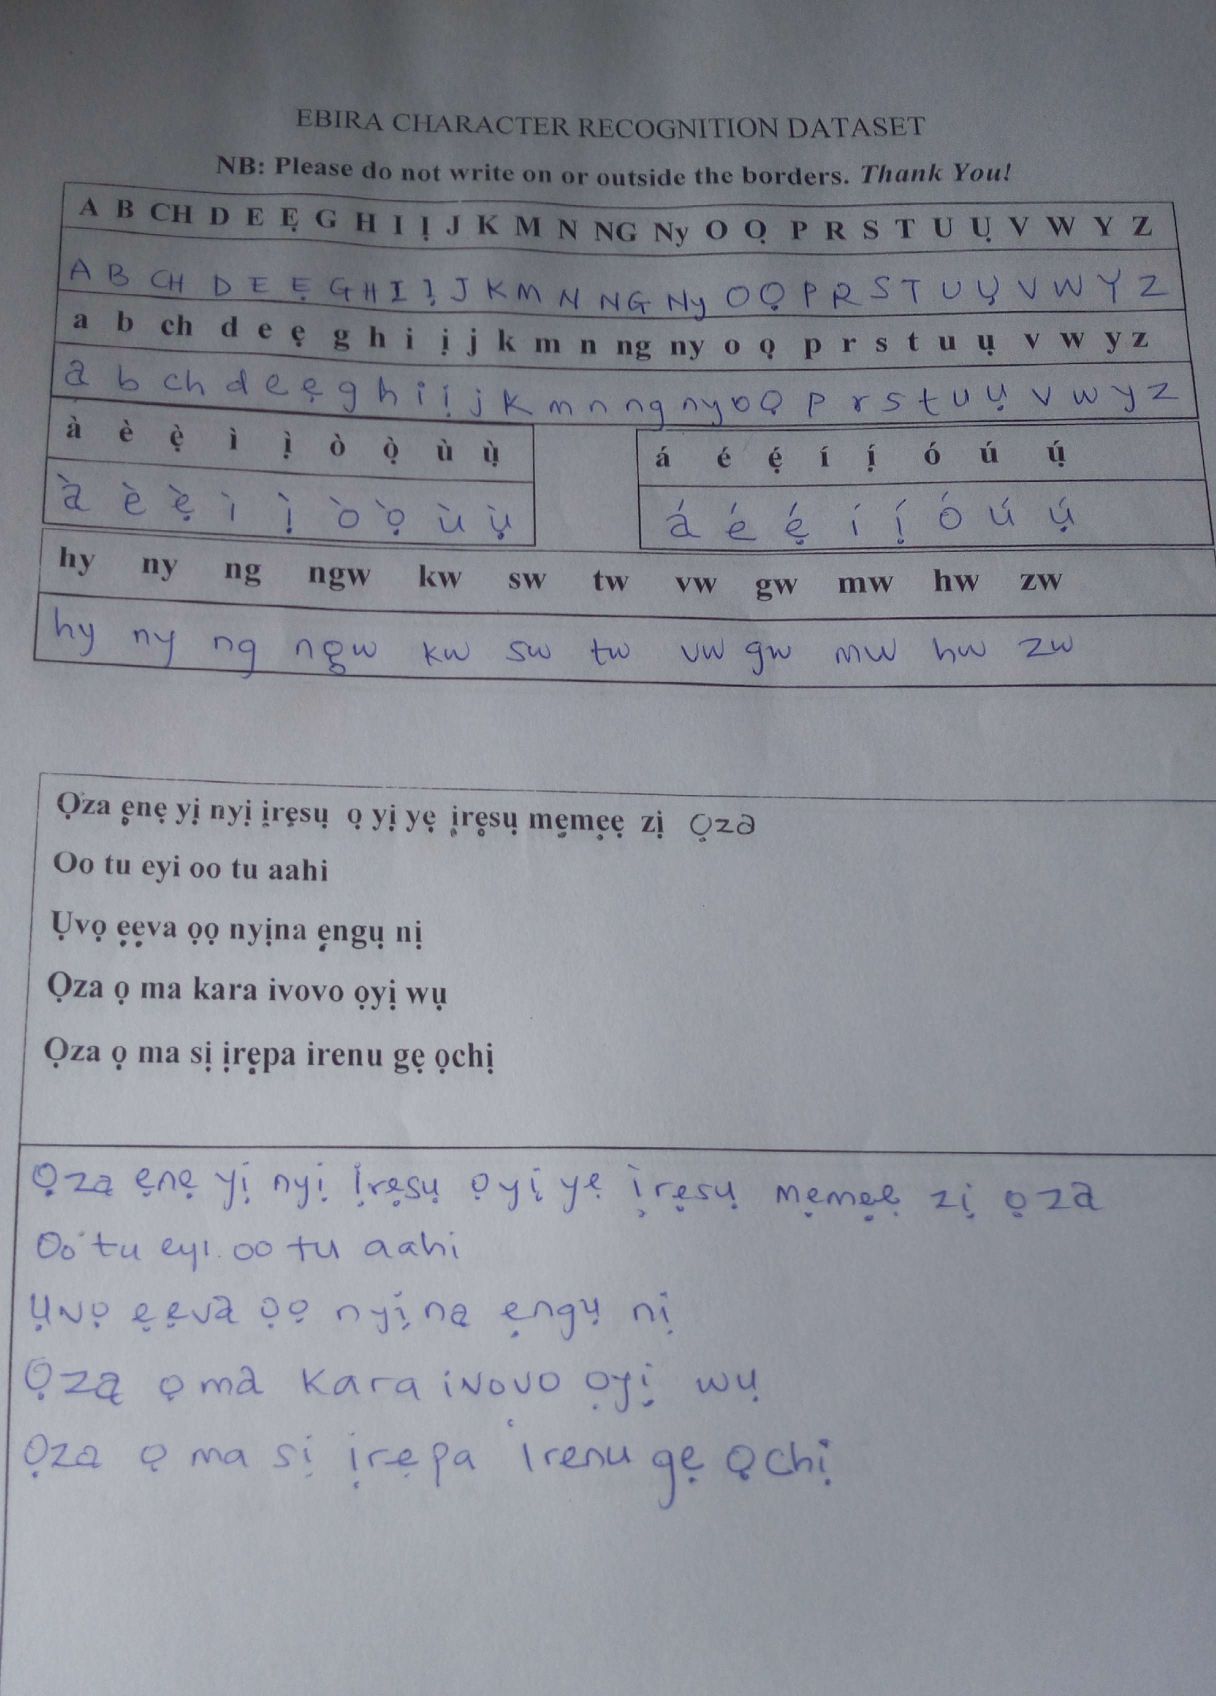 EBIRA CHARACTER RECOGNITION DATASET
NB: Please do not write on or outside the borders. Thank You!
A B CH D E Ẹ G H I Ị J K M N NG Ny O Ọ P R S T U Ụ V W Y Z
A B CH D E Ẹ G H I Ị J K M N NG Ny O Ọ P R S T U Ụ V W Y Z
a b ch d e ẹ g h i ị j k m n ng ny o ọ p r s t u ụ v w y z
a b ch d e ẹ g h i ị j k m n ng ny o ọ p r s t u ụ v w y z
à è ẹ̀ ì ị̀ ò ọ̀ ù ụ̀ á é ẹ́ í ị́ ó ú ụ́
à è ẹ̀ ì ị̀ ò ọ̀ ù ụ̀ á é ẹ́ í ị́ ó ú ụ́
hy ny ng ngw kw sw tw vw gw mw hw zw
hy ny ng ngw kw sw tw vw gw mw hw zw
Ọza ẹnẹ yị nyị ịrẹsụ ọ yị yẹ ịrẹsụ mẹmẹẹ zị ọza
Oo tu eyi oo tu aahi
Ụvọ ẹẹva ọọ nyịna ẹngụ nị
Ọza ọ ma kara ivovo ọyị wụ
Ọza ọ ma sị ịrẹpa irenu gẹ ọchị
Ọza ẹnẹ yị nyị ịrẹsụ ọyị yẹ ịrẹsụ mẹmẹẹ zị ọza
Oo tu eyi oo tu aahi
Ụvọ ẹẹva ọọ nyịna ẹngụ nị
Ọza ọ ma kara ivovo ọyị wụ
Ọza ọ ma sị ịrẹpa irenu gẹ ọchị